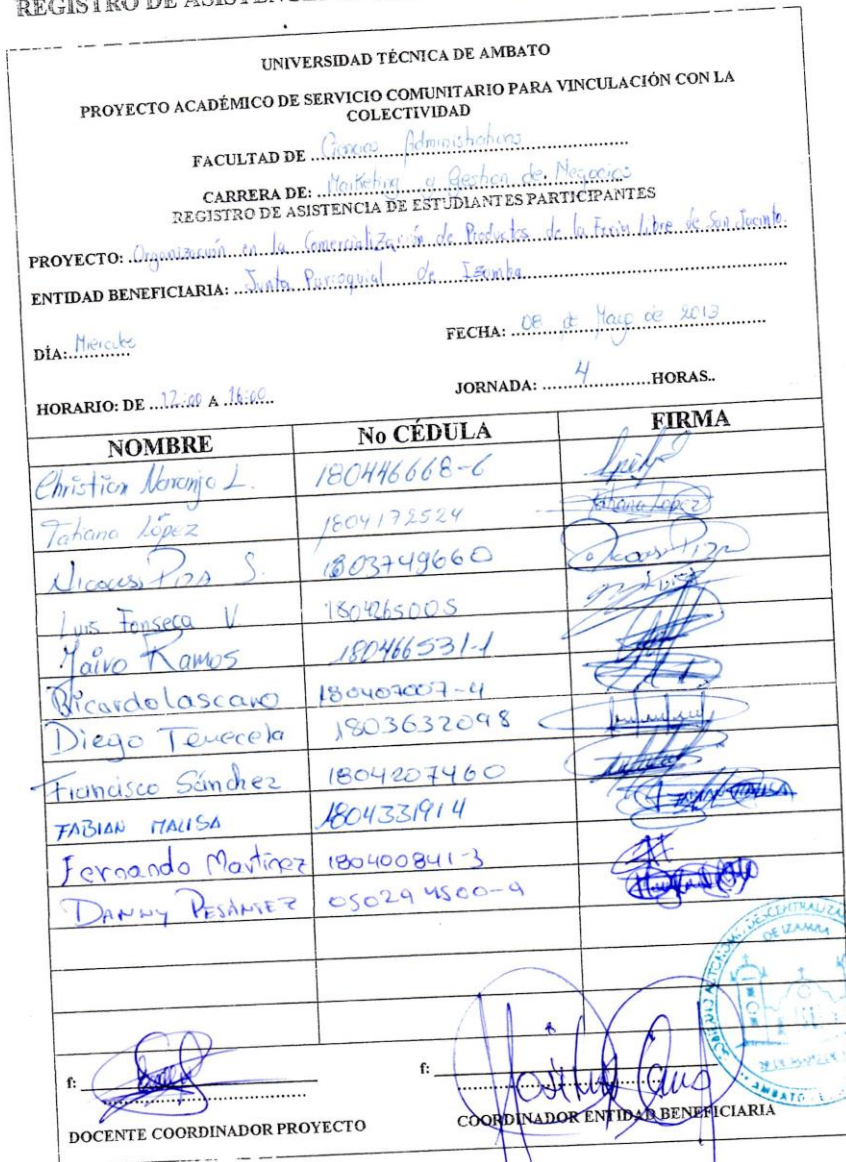 REGISTRO DE
UNIVERSIDAD TÉCNICA DE AMBATO
PROYECTO ACADÉMICO DE SERVICIO COMUNITARIO PARA VINCULACIÓN CON LA
COLECTIVIDAD
FACULTAD DE Ciencias Administrativas
CARRERA DE: Marketing y Gestion de Negocios
REGISTRO DE ASISTENCIA DE ESTUDIANTES PARTICIPANTES
PROYECTO: Organización en la Comercialización de Productos de la Feria Libre de San Jacinto.
ENTIDAD BENEFICIARIA: Junta Parroquial de Izamba
DÍA: Miercoles FECHA: 08 de Mayo de 2013
HORARIO: DE 12:00 A 16:00 JORNADA: 4 HORAS..
NOMBRE No CÉDULA FIRMA
Christian Naranjo L. 180446668-6
Tatiana López 1804172524 Tatiana López
Piza S. 1803749660 Piza
Luis Fonseca V 180426500S
Jairo Ramos 180466531-1
Ricardo Lascano 180407007-4
Diego Tenecela 1803632098
Francisco Sánchez 1804207460
FABIAN MALISA 1804331914
Fernando Martinez 180400841-3
DANNY PESÁNTEZ 050294500-9
DESCENTRALIZADO
DE IZAMBA
AMBATO
f: f:
DOCENTE COORDINADOR PROYECTO COORDINADOR ENTIDAD BENEFICIARIA